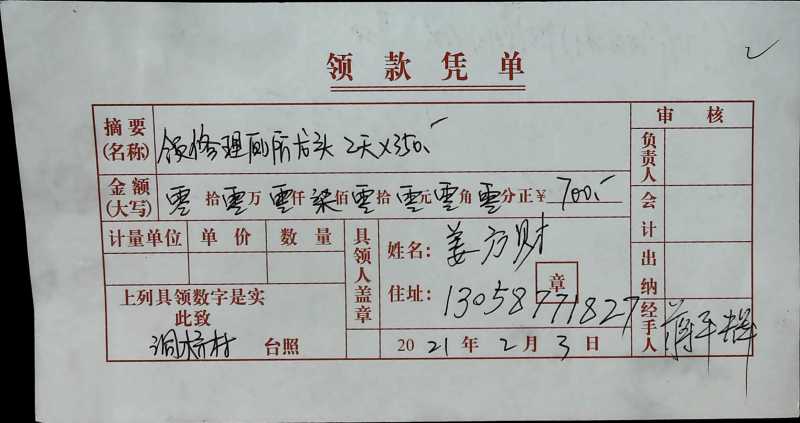 领款凭单
2
摘要(名称) 领修理厕所龙头 2天×350.- 审核
金额(大写) 零拾零万零仟柒佰零拾零元零角零分正¥ 700.-
负责人
会计
计量单位 单价 数量 具领人盖章 姓名: 姜方财
出纳
住址: 13058771827 章
上列具领数字是实
此致
洞桥村 台照 2021年2月3日 经手人